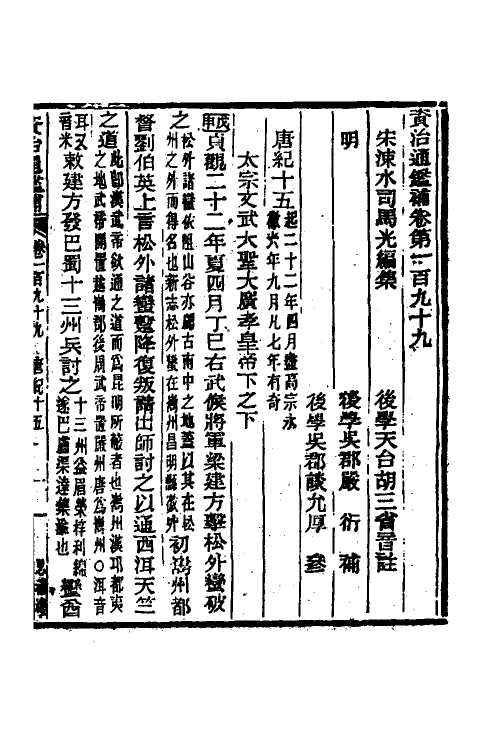 資治通鑑補卷第一百九十九
宋涑水司馬光編集
後學天台胡三省音註
明
後學吳郡嚴衍補
後學吳郡談允厚參
唐紀十五 起二十二年四月盡高宗永徽六年九月凡七年有奇
太宗文武大聖大廣孝皇帝下之下
貞觀二十二年夏四月丁巳右武候將軍梁建方擊松外蠻破
之 松外諸蠻依阻山谷亦屬古南中之地蓋以其在松州之外而得名也新志松外蠻在巂州昌明縣徼外 初巂州都
督劉伯英上言松外諸蠻蹔降復叛請出師討之以通西洱天竺
之道 此卽漢武帝欲通之道而爲昆明所蔽者也巂州漢邛都夷之地武帝開置越巂郡後周武帝置嚴州唐爲巂州○洱音
耳又音米 敕建方發巴蜀十三州兵討之 十三州益眉榮梓利綿遂巴瀘渠達集 也 蠻酋
資治通鑑補 卷一百九十九 唐紀十五 一